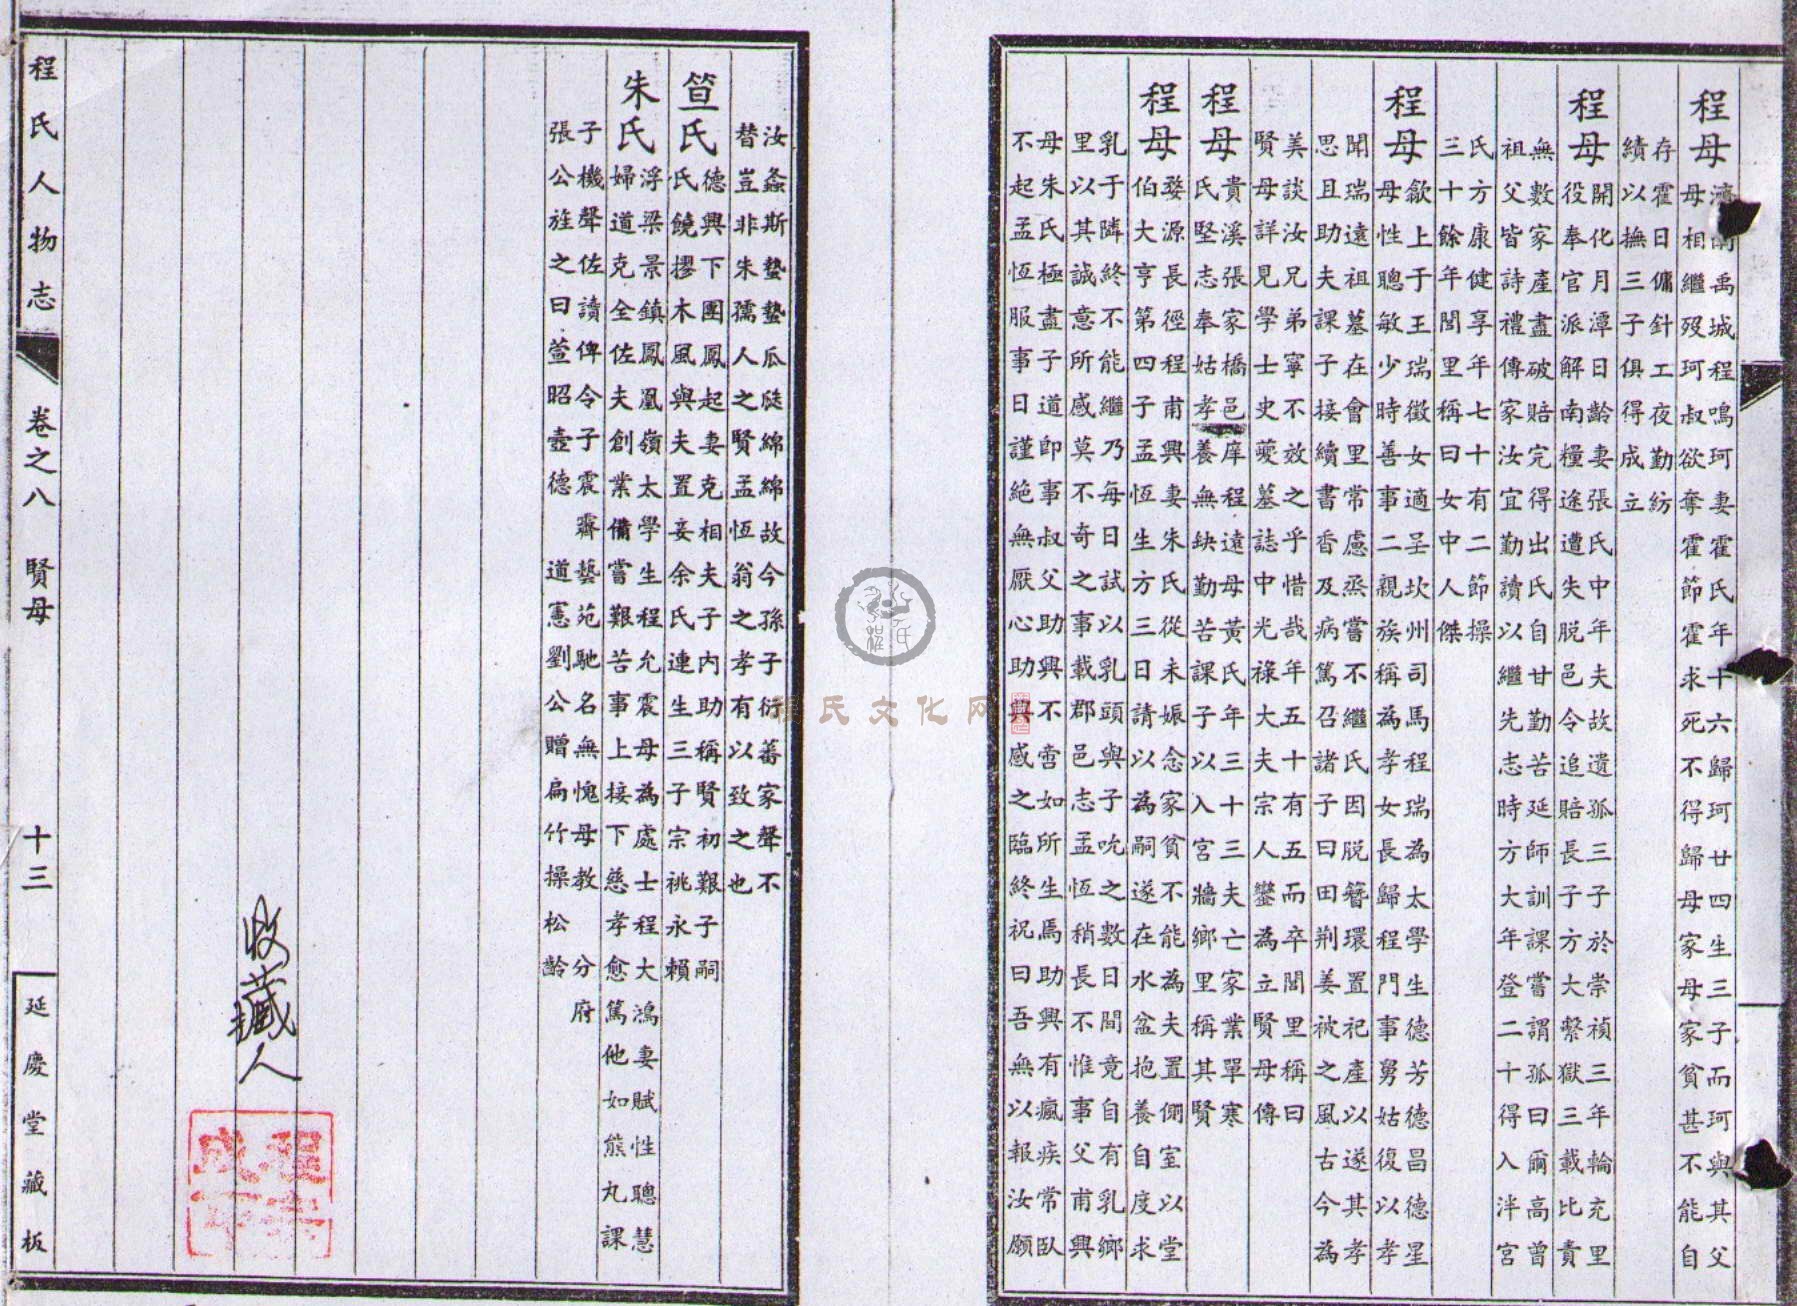 程母
濟南禹城程鳴珂妻霍氏年十六歸珂廿四生三子而珂與其父
母相繼歿珂叔欲奪霍節霍求死不得歸母家母家貧甚不能自
存霍日傭針工夜勤紡
績以撫三子俱得成立
程母
開化月潭日齡妻張氏中年夫故遺孤三子於崇禎三年輪充里
役奉官派解南糧途遭失脫邑令追賠長子方大繫獄三載比責
無數家產盡破賠完得出氏自甘勤苦延師訓課嘗謂孤曰爾高曾
祖父皆詩禮傳家汝宜勤讀以繼先志時方大年登二十得入泮宮
氏方康健享年七十有二節操
三十餘年閭里稱曰女中人傑
程母
歙上于王瑞徵女適呈坎州司馬程瑞為太學生德芳德昌德星
母性聰敏少時善事二親族稱為孝女長歸程門事舅姑復以孝
聞瑞遠祖墓在會里常慮烝嘗不繼氏因脫簪環置祀產以遂其孝
思且助夫課子接續書香及病篤召諸子曰田荆姜被之風古今為
美談汝兄弟寧不效之乎惜哉年五十有五而卒閭里稱曰
賢母詳見學士史夔墓誌中光祿大夫宗人鑾為立賢母傳
程母
貴溪張家橋邑庠程遠母黃氏年三十三夫亡家業單寒
氏堅志奉姑孝養無缺勤苦課子以入宮牆鄉里稱其賢
程母
婺源長徑程甫興妻朱氏從未娠念家貧不能為夫置側室以堂
伯大亨第四子孟恆生方三日請以為嗣遂在水盆抱養自度求
乳于隣終不能繼乃每日試以乳頭與子吮之數日間竟自有乳鄉
里以其誠意所感莫不奇之事載郡邑志孟恆稍長不惟事父甫興
母朱氏極盡子道即事叔父助興不啻如所生焉助興有瘋疾常臥
不起孟恆服事日謹絕無厭心助興感之臨終祝曰吾無以報汝願
汝螽斯蟄蟄瓜瓞綿綿故今孫子衍蕃家聲不
替豈非朱孺人之賢孟恆翁之孝有以致之也
笪氏
德興下團鳳起妻克相夫子內助稱賢初艱子嗣
氏饒摎木風與夫置妾余氏連生三子宗祧永賴
朱氏
浮梁景鎮鳳凰嶺太學生程允震母為處士程大鴻妻賦性聰慧
婦道克全佐夫創業備嘗艱苦事上接下慈孝愈篤他如熊丸課
子機聲佐讀俾令子震霽藝苑馳名無愧母教分府
張公旌之曰萱昭壺德道憲劉公贈扁竹操松齡
收藏人
程氏人物志 卷之八 賢母 十三 延慶堂藏板
程氏文化网